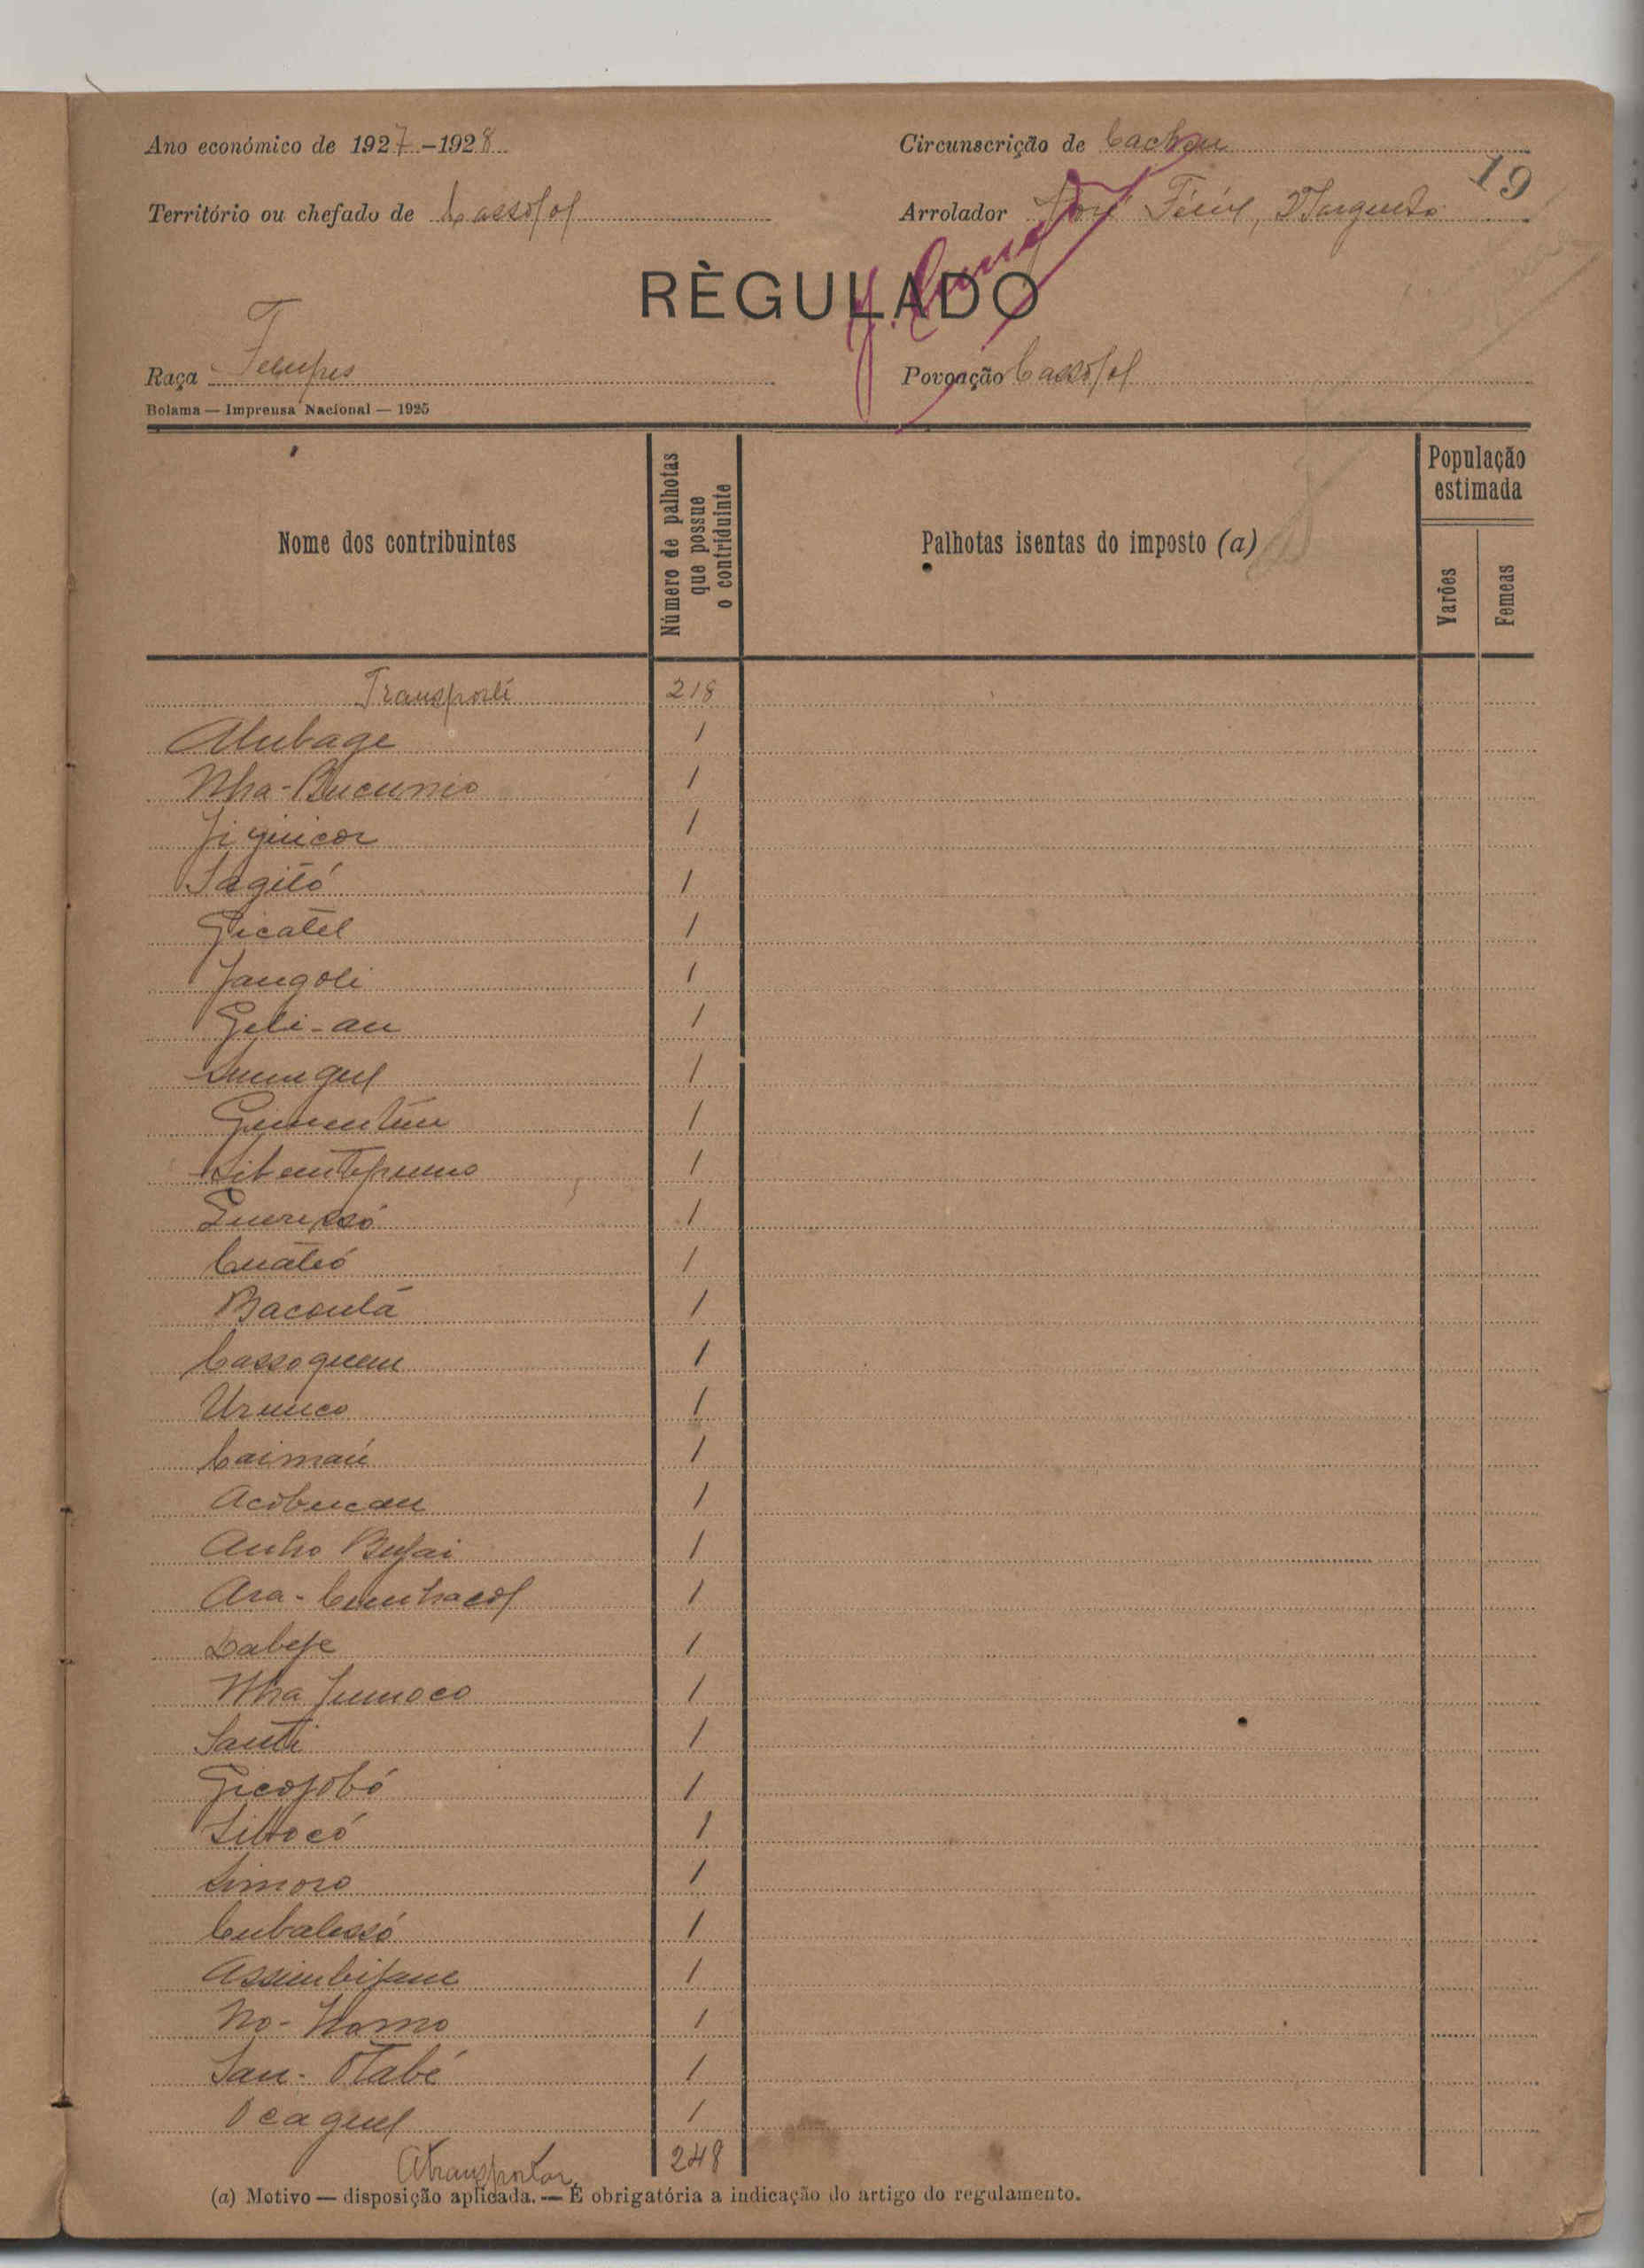 Ano económico de 1927-1928
Circunscrição de Cacheu
19
Território ou chefado de Cassolol
Arrolador José 2º Sargento
RÈGULADO
Raça Felupes
Povoação Cassolol
Bolama — Imprensa Nacional — 1925
Nome dos contribuintes
Número de palhotas que possue o contriduinte
Palhotas isentas do imposto (a)
População estimada
Varões
Femeas
Transporte 218
Alubage 1
Nha-Bucumio 1
Jiquicor 1
Sagitó 1
Gicatel 1
Jangoli 1
Geli-au 1
1
1
1
1
Cuateó 1
Bacoulá 1
Cassoquem 1
Urunco 1
Caimau 1
Acobucau 1
Anho Bujai 1
Ara-Cunhacol 1
Dabeje 1
Nha Jumoco 1
Santi 1
Gicojobó 1
Sibocó 1
Simoro 1
Cubalessó 1
Assimbijane 1
No-Homo 1
San-Otabé 1
Ocaquel 1
A transportar 248
(a) Motivo — disposição aplicada. — É obrigatória a indicação do artigo do regulamento.